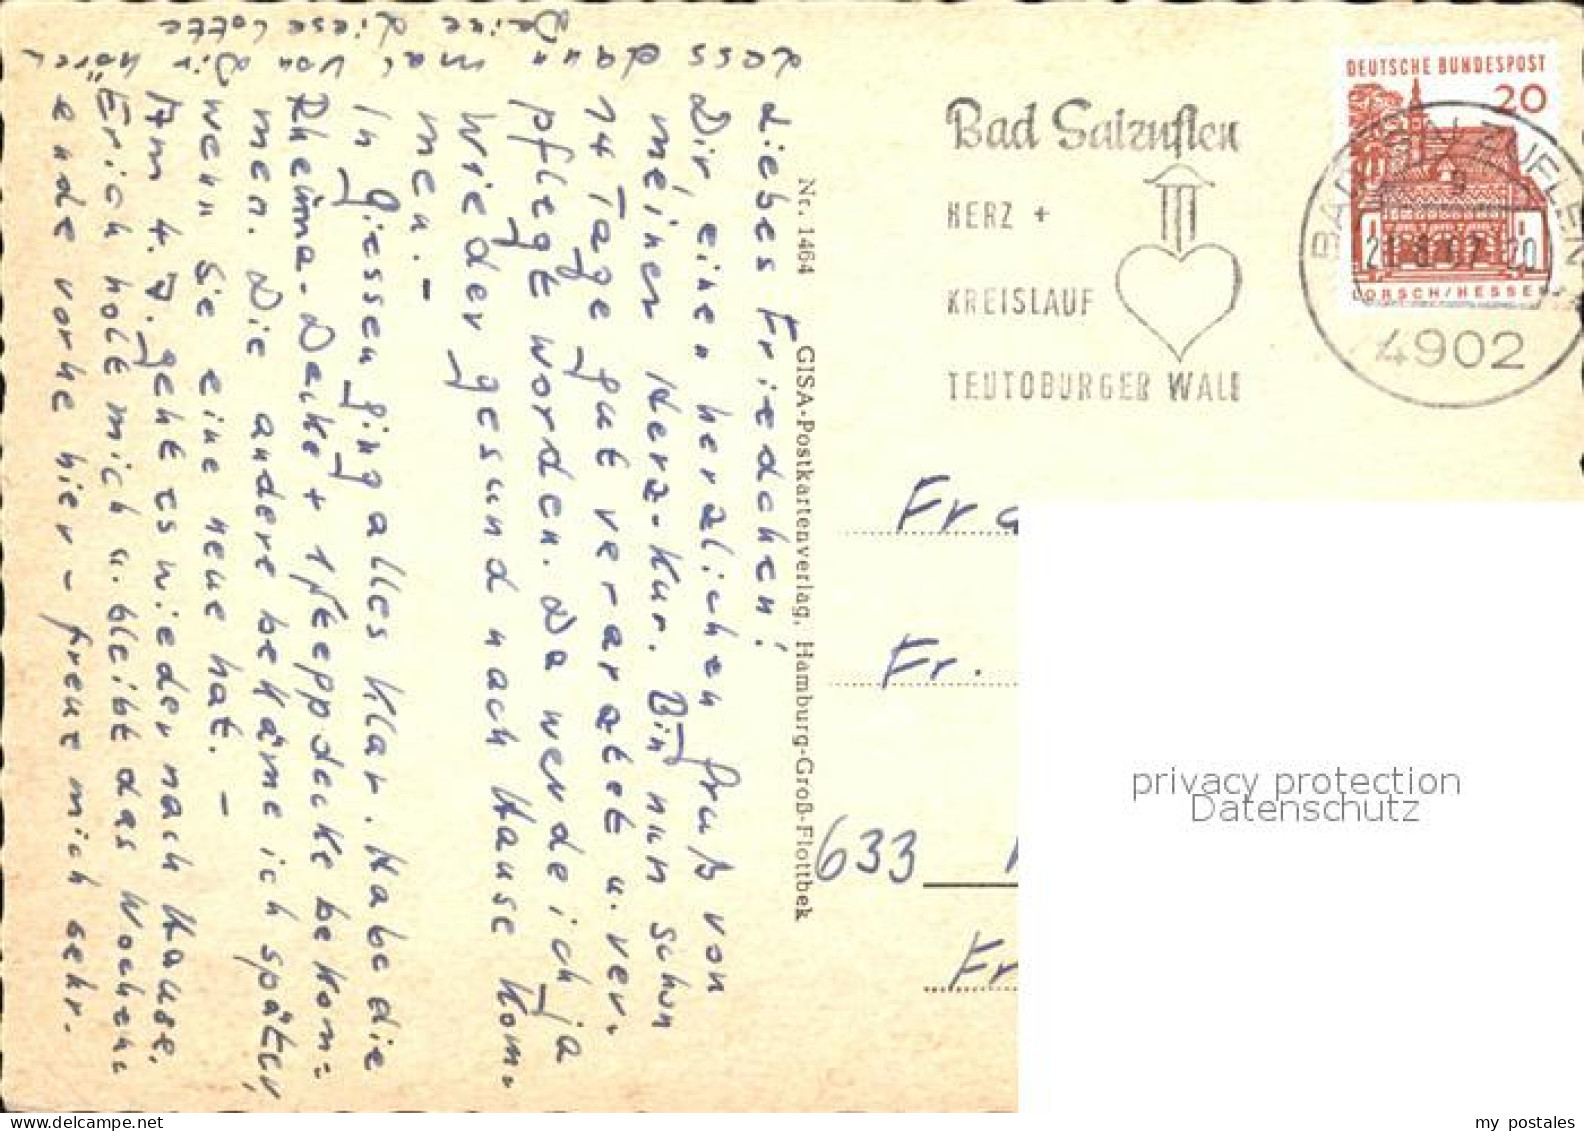 Liebes Friedchen!
Dir, einen herzlichen Gruß von
meiner Herz-Kur. Bin nun schon
14 Tage gut verarztet u. ver-
pflegt worden. Da werde ich ja
wieder gesund nach Hause kom-
men. –
In Giessen ging alles klar. Habe die
Rheuma-Decke + 1 Steppdecke bekom=
men. Die andere bekäme ich später,
wenn sie eine neue hat. –
Am 4.7. geht es wieder nach Hause.
Erich holt mich u. bleibt das Wochen-
ende vorhe hier – freue mich sehr.
Lass dann mal von Dir hören
Deine Lieselotte
Nr. 1464 GISA-Postkartenverlag, Hamburg-Groß-Flottbek
Bad Salzuflen
HERZ +
KREISLAUF
TEUTOBURGER WALD
DEUTSCHE BUNDESPOST
20
LORSCH/HESSEN
BAD SALZUFLEN
4902
Fr
Fr.
633
Fr
privacy protection
Datenschutz
my postales